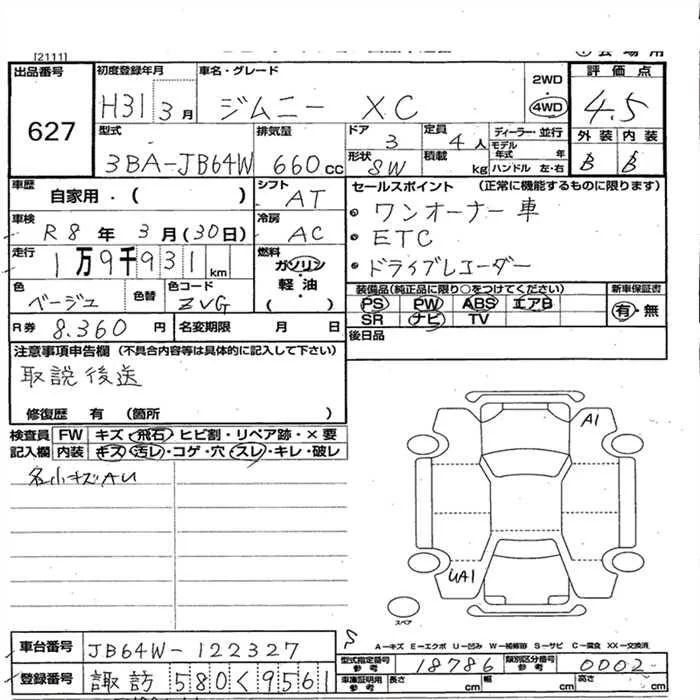 [2111]
出品番号
627
初度登録年月
H31 3月
車名・グレード
ジムニー XC
2WD
4WD
評価点
4.5
型式
3BA-JB64W
排気量
660cc
ドア
3
定員
4人
ディーラー・並行
形状
SW
積載
kg
モデル年式 年
ハンドル 左・右
外装 内装
B B
車歴
自家用・( )
シフト
AT
セールスポイント (正常に機能するものに限ります)
・ワンオーナー車
・ETC
・ドライブレコーダー
車検
R8年 3月(30日)
冷房
AC
走行
1万9千931km
燃料
ガソリン
軽油
( )
色
ベージュ
色替
色コード
ZVG
装備品(純正品に限り○をつけてください)
新車保証書
PS PW ABS エアB
有・無
SR ナビ TV
R券 8.360円
名変期限 月 日
後日品
注意事項申告欄 (不具合内容等は具体的に記入して下さい)
取説後送
修復歴 有 (箇所 )
検査員記入欄
FW キズ・飛石・ヒビ割・リペア跡・×要
内装 キズ・汚レ・コゲ・穴・スレ・キレ・破レ
各小キズAU
A1
UA1
スペア
A-キズ E-エクボ U-凹み W-補修跡 S-サビ C-腐食 XX-交換済
車台番号
JB64W-122327
型式指定番号 参考
18786
類別区分番号 参考
0002
登録番号
諏訪 580く9561
車庫証明用 参考
長さ cm 幅 cm 高さ cm